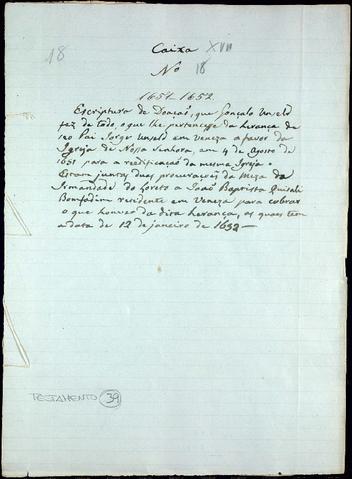 18
Caixa XVII
No 18
1651-1652
Escriptura de Doação, que Gonçalo Unseld
fez de todo, o que lhe pertencesse da herança de
seo Pai Jorge Unseld em veneza a favor da
Igreja de Nossa Senhora, em 4 de Agosto de
1651 para a reedificação da mesma Igreja.
Estam juntas duas procurações da Meza da
Irmandade do Loreto a João Baptista
Bonfadim residente em Veneza para cobrar
o que houver da dita herança, as quaes tem
a data de 12 de janeiro de 1652
TESTAMENTO 39